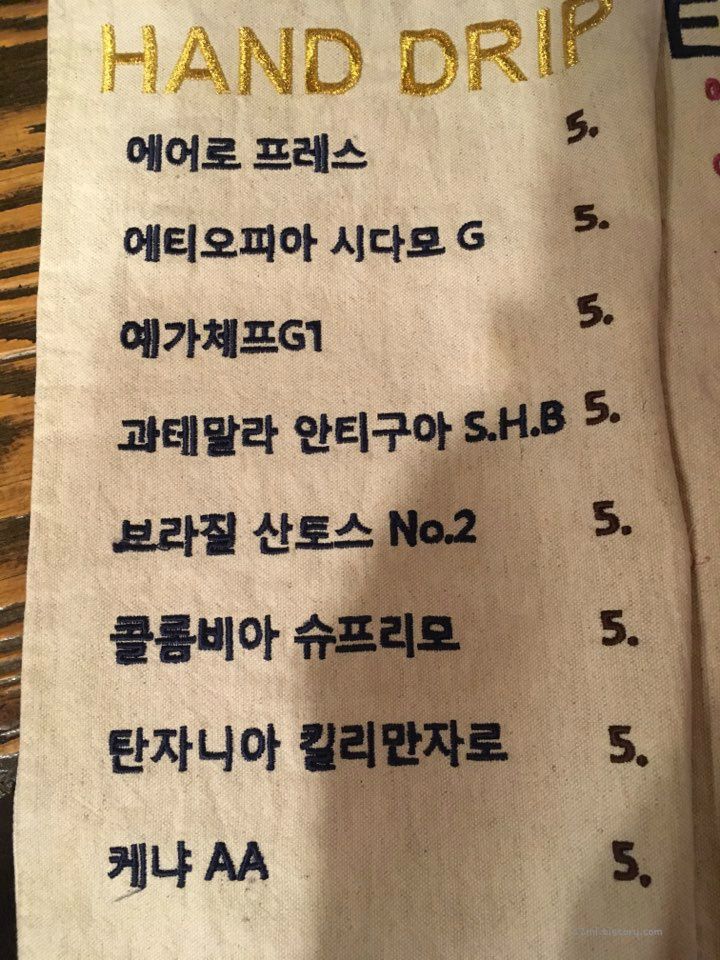 HAND DRIP
에어로 프레스 5.
에티오피아 시다모 G 5.
예가체프G1 5.
과테말라 안티구아 S.H.B 5.
브라질 산토스 No.2 5.
콜롬비아 슈프리모 5.
탄자니아 킬리만자로 5.
케냐 AA 5.